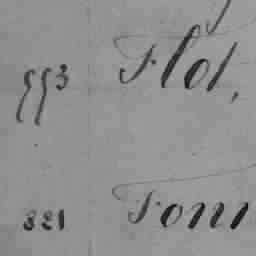 553 Flot,
321 Fonn